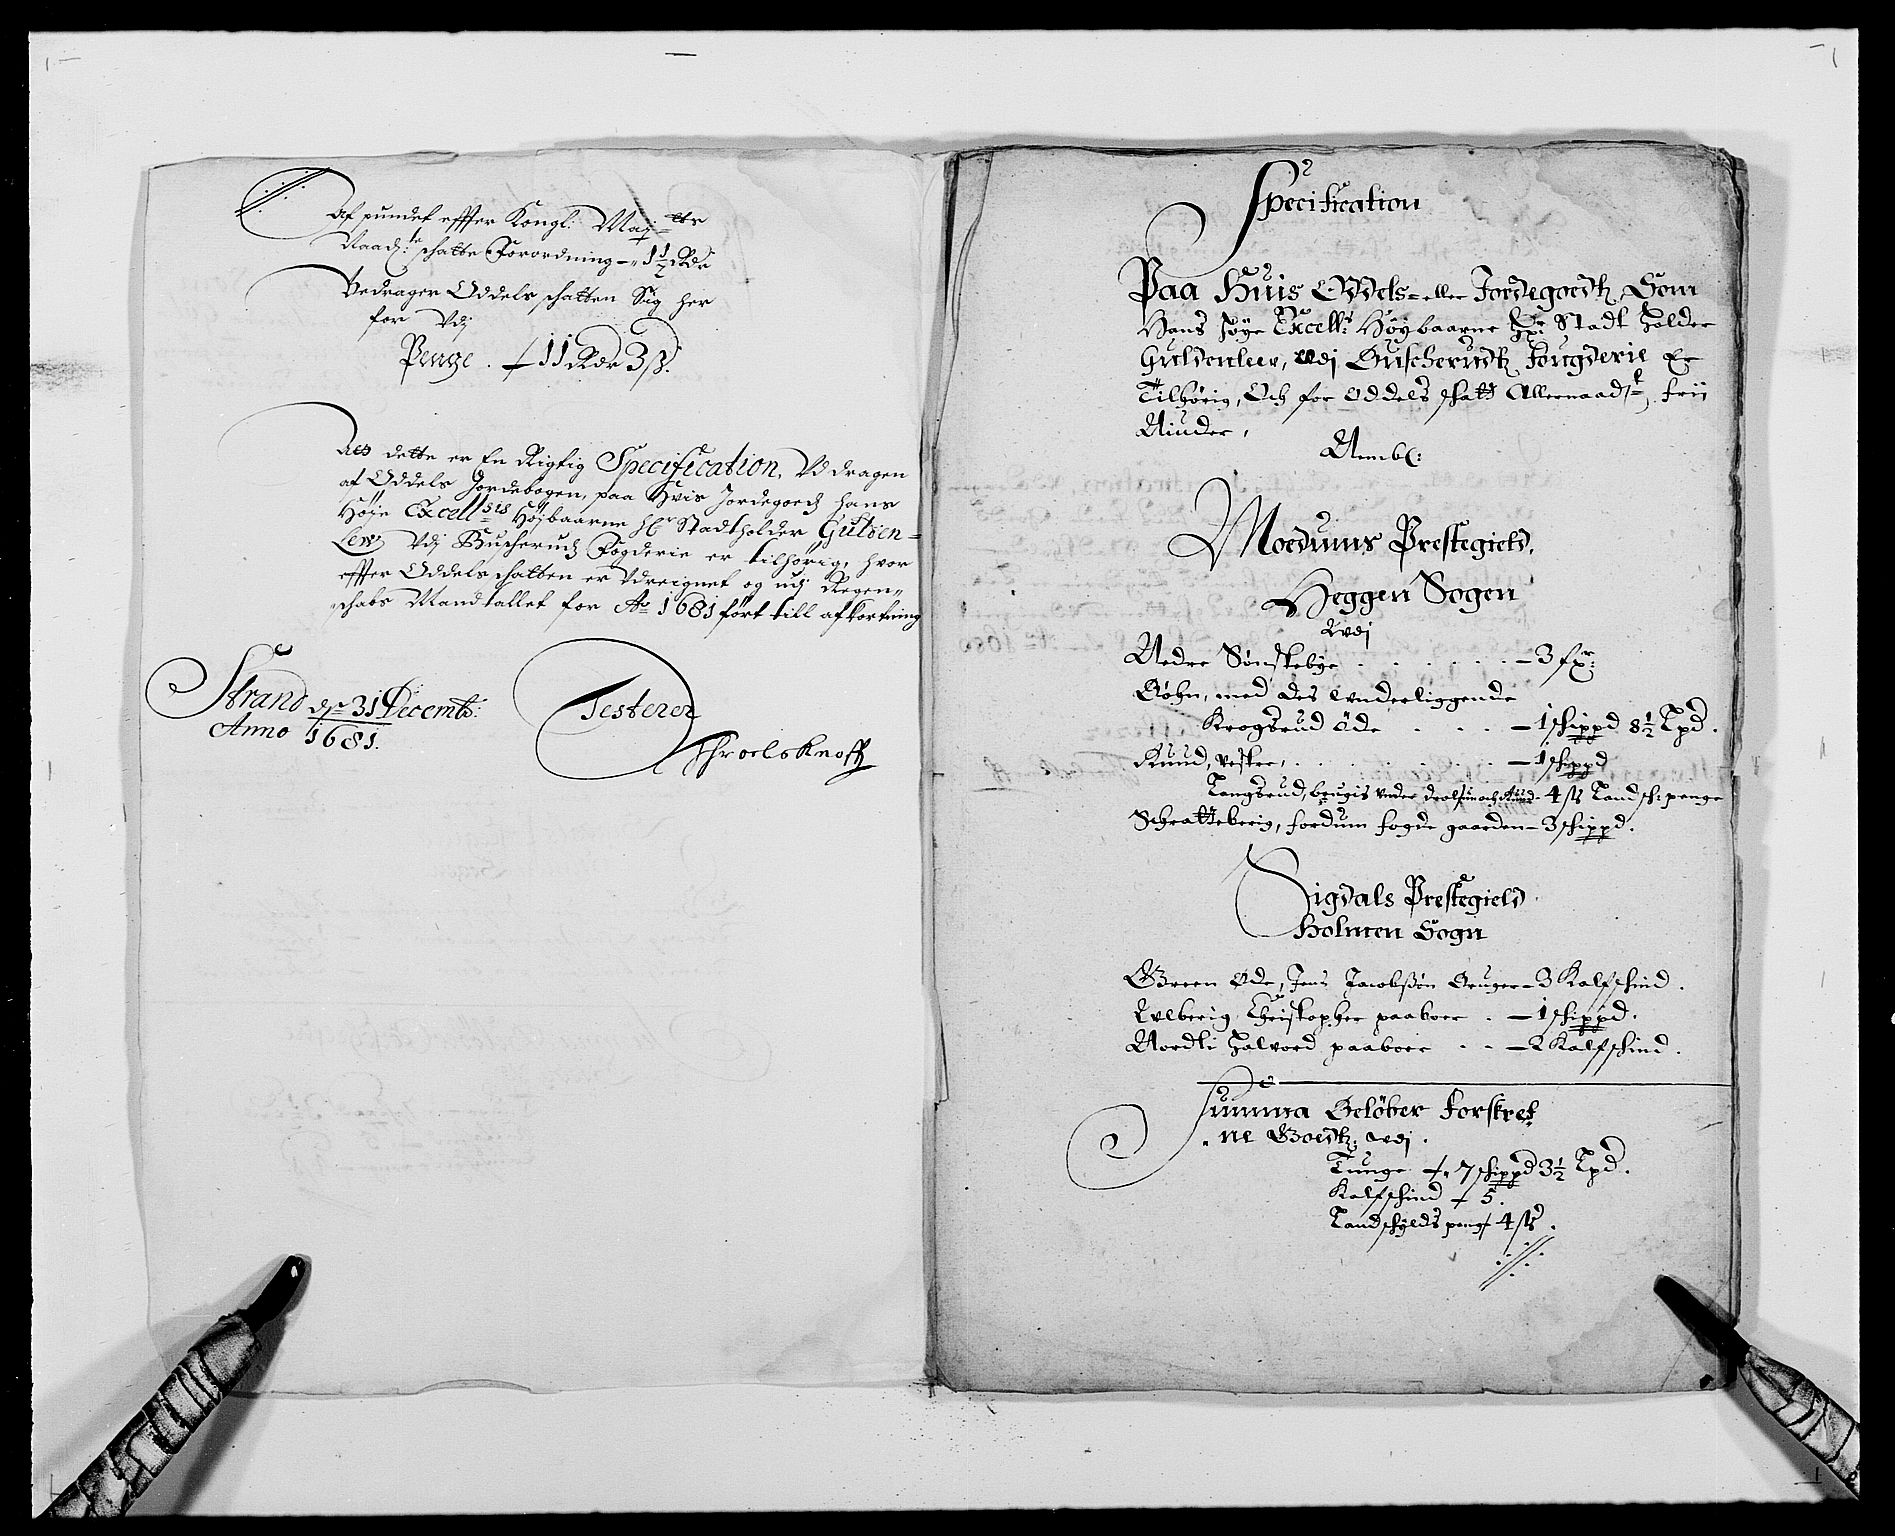 Af pundet effter Kongl: Maij:tts
Naad:te schatte Forordning - 1½ Rdr
Bedrager Oddels schatten Sig her
for Vdj
Penge . 11 Rdr 3 ß.
At dette er En Rigtig Specification, Vddragen
af Oddels Jordebogen, paa Hvis Jordegoedz hans
Høje Excell:ses Højbaarne Hr Stadtholder Gulden=
Lew, Vdj Buscheruds Fogderie er tilhørig, hvor
effter Oddelschatten er Vdreignet og udj Regen=
schabs Mandtallet for Ao 1681 ført till afkortning
Strand dn 31 Decemb:
Anno 1681.
Testerer
Throels Knoff
Specification
Paa Huis Oddels- eller Jordegoedtz Som
Hans høye Excell:s Høybaarne Hr: Stadt holder
Guldenleew, udj Buscherudtz Fougderie Er
Tilhørig, Och for Oddels schatt Allernaadst: frii
Niuder,
Nembl:
Moedums Prestegield.
Heggen Sogen
Vdj
Nedre Sønstebye . . . . . . - 3 fr:
Gøhn, med des Vnderliggende
Krogsrud Øde . . . - 1 schippd 8½ Lpd.
Ruud, Vester, . . . . . . - 1 schippd
Langerud, brugis Vnder och Ruud - 4 ß Landsch: penge
Schratteberig, fordum fogde gaarden - 3 schippd.
Sigdals Prestegield
Holmen Sogn
Green Øde, Jens Jacobßøn Bruger - 3 Kalfschind.
Ulberig Christopher paaboer . - 1 schippd.
Nordli Halvord paaboer . . - 2 Kalfschind.
Summa Beløber Forskref
=ne Goedtz: udj.
Tunge - 7 schippd 3½ Lpd.
Kalfschind - 5.
Landschylds peng - 4 ß.